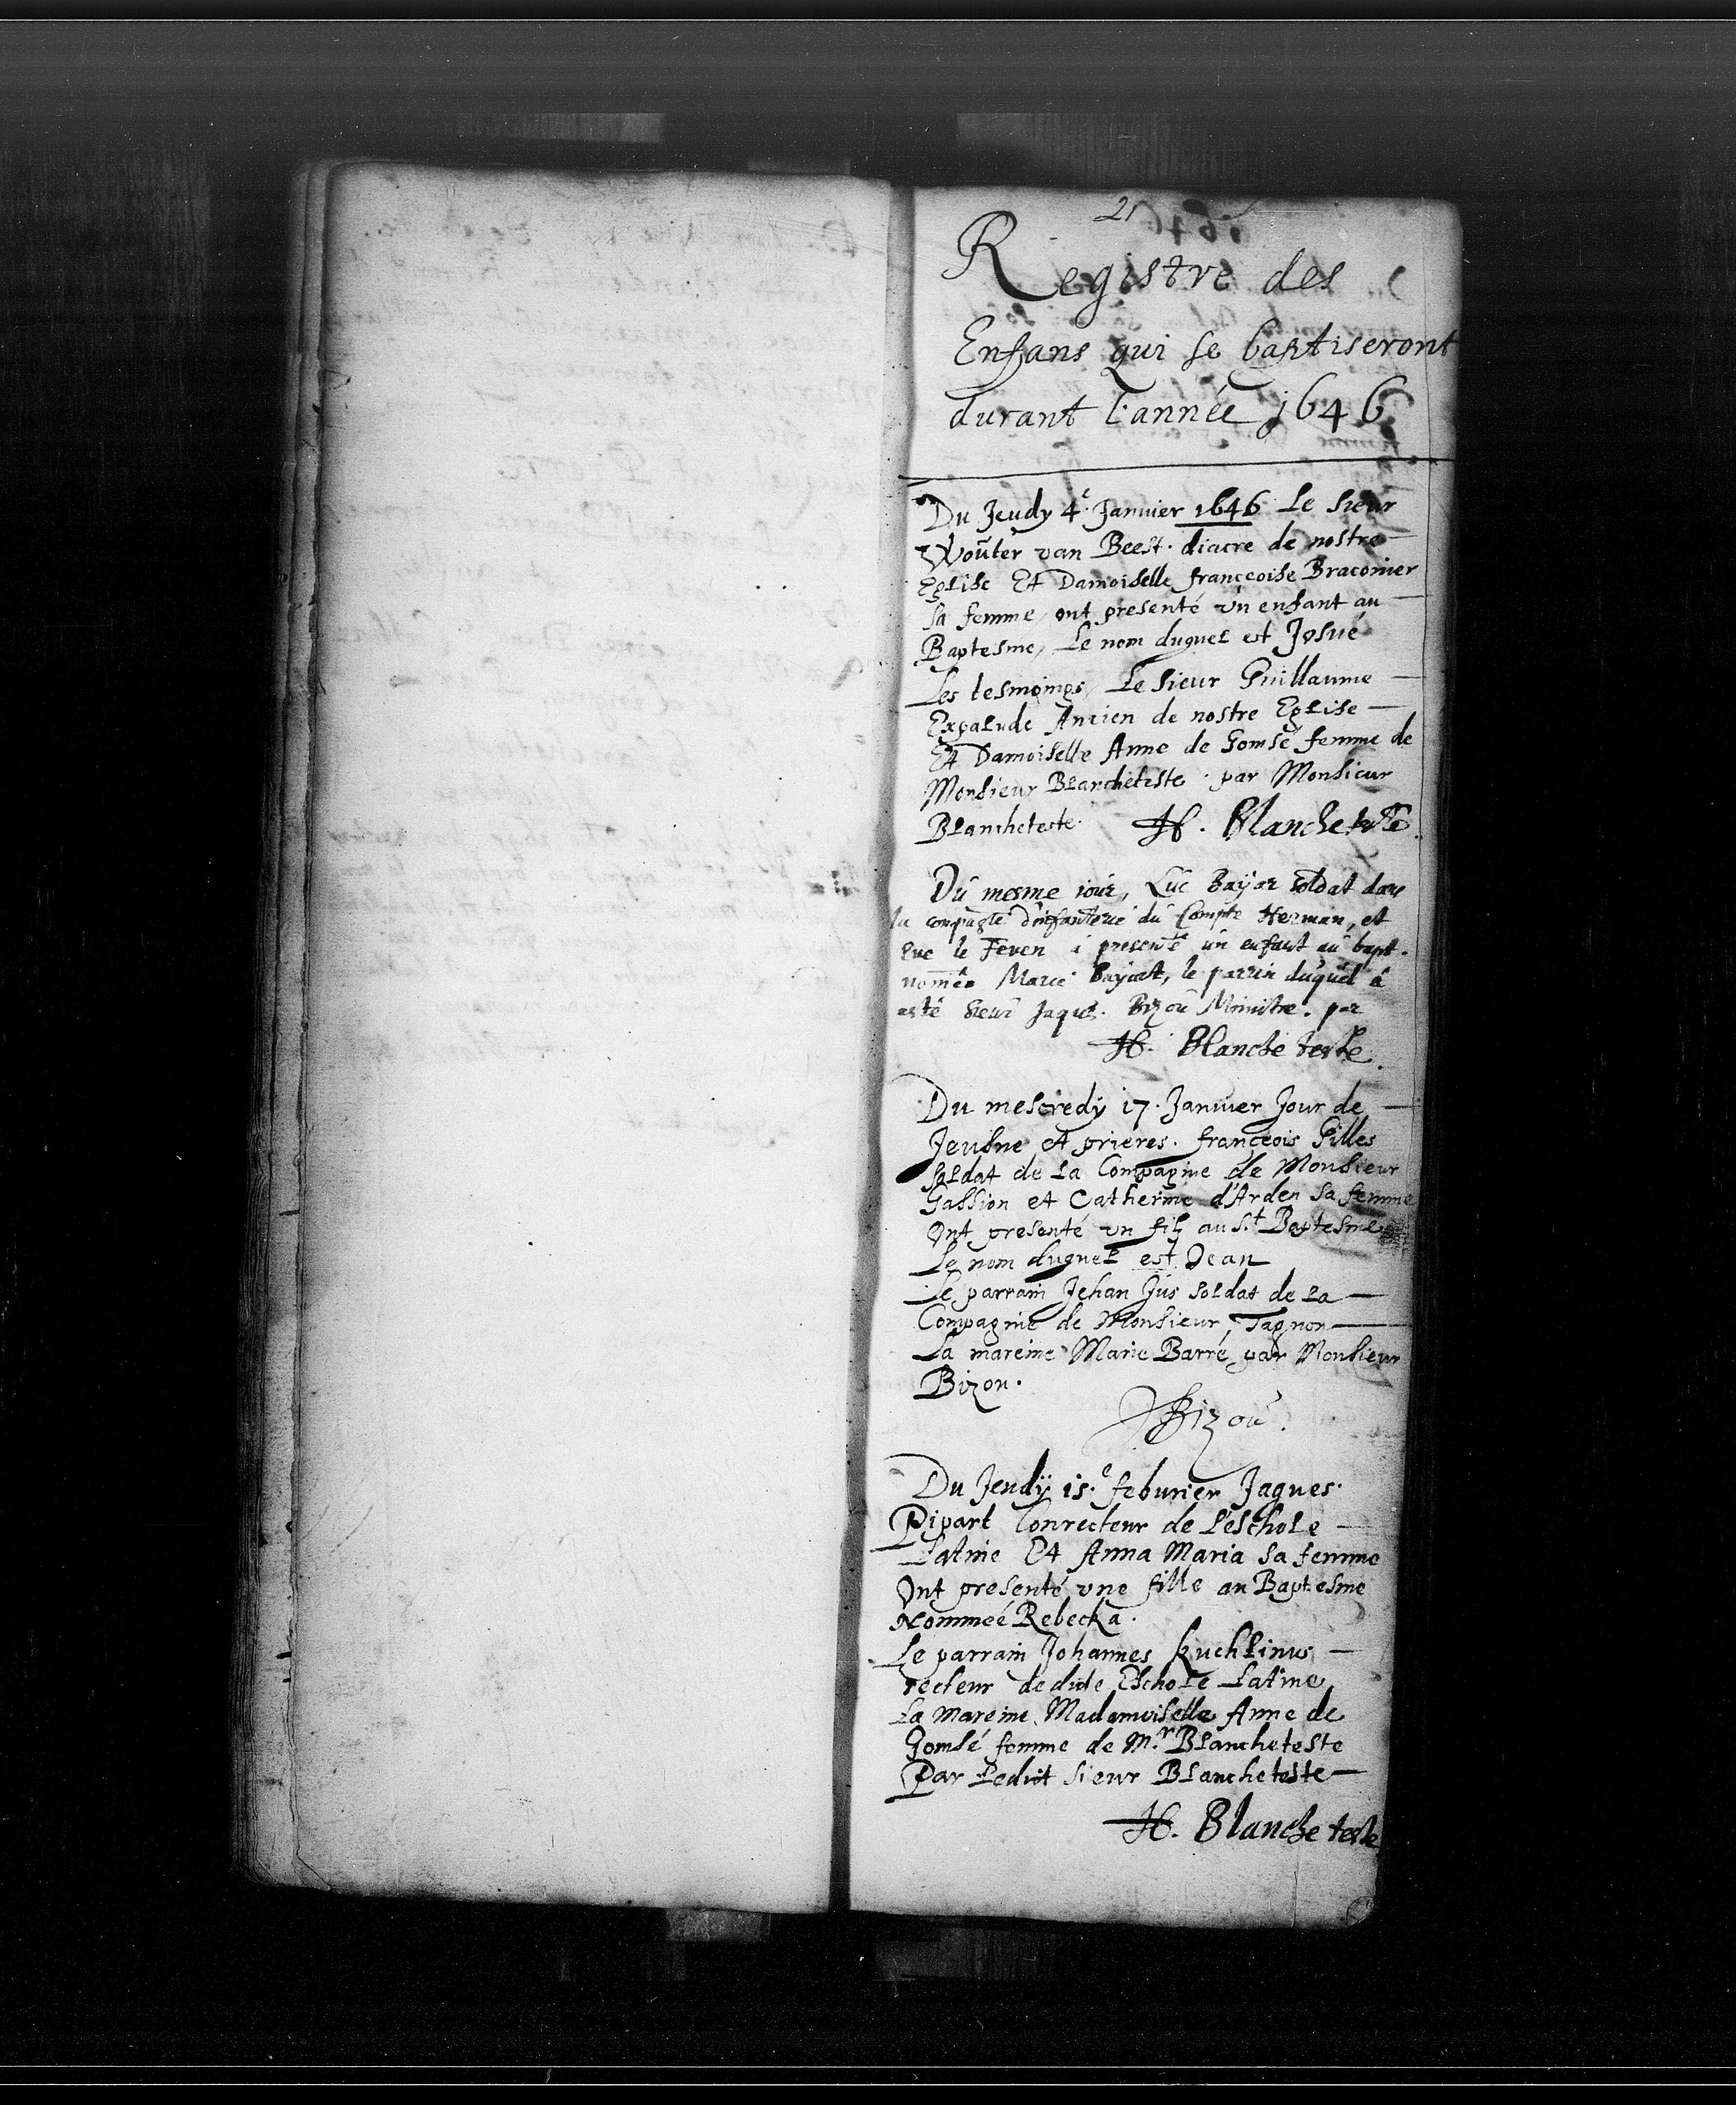 21
Registre des
Enfans qui se baptiseront
durant l'année 1646
Du Jeudy 4e. Janvier 1646 Le sieur
Wouter van Beest. diacre de nostre
Eglise Et Damoiselle françoise Braconier
sa femme, ont presenté un enfant au
Baptesme, Le nom duquel est Josué
Les tesmoings, Le sieur Guillaume
Expalude Ancien de nostre Eglise
Et Damoiselle Anne de Gomsé femme de
Monsieur Blancheteste. par Monsieur
Blancheteste. H. Blancheteste.
Du mesme iour, Luc Bayar soldat dans
la compagie d'infanterie du Compte Herman, et
Eve le Feven a presenté un enfant au bapt.
nommée Marie Bayart, le parrin duquel a
esté Sieur Jaques Bizou Ministre. par
H. Blanche teste.
Du mescredy 17. Janvier Jour de
Jeusne et prieres. françois Gilles
soldat de la Compagnie de Monsieur
Gassion et Catherine d'Arden sa femme
Ont presenté un filz au St. Baptesme
Le nom duquel est Jean
Le parrain Jehan Jus soldat de la
Compagnie de Monsieur Tagnon
La mareine Marie Barré par Monsieur
Bizou.
Bizou.
Du Jeudy 15.e feburier Jaques
Pipart Conrecteur de L'eschole
Latine Et Anna Maria sa femme
Ont presenté vne fille au Baptesme
Nommeé Rebecka.
Le parrain Johannes Kuchlinus
recteur de dicte Eschole Latine
La mareine Mademoiselle Anne de
Gomsé femme de Mr. Blancheteste
Par Ledict sieur Blancheteste
H. Blanche teste